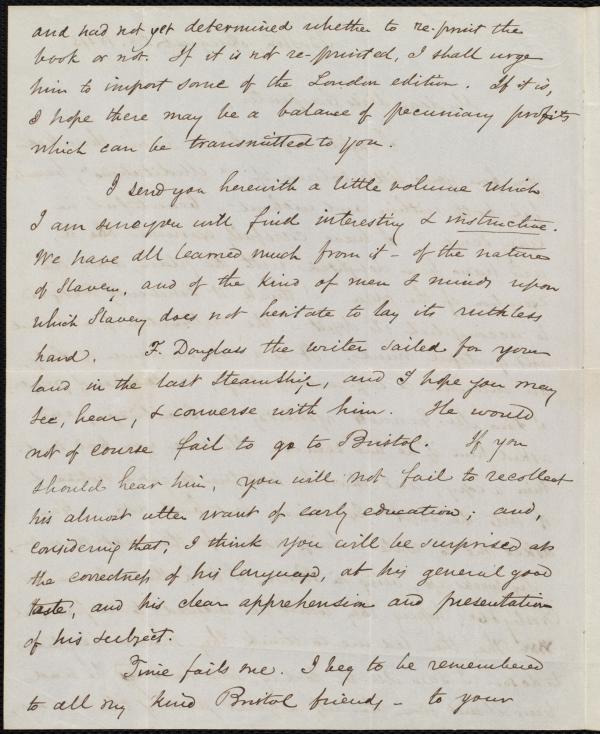 and had not yet determined whether to re-print the
book or not. If it is not re-printed, I shall urge
him to import some of the London edition. If it is,
I hope there may be a balance of pecuniary profits
which can be transmitted to you.
I send you herewith a little volume which
I am sure you will find interesting & instructive.
We have all learned much from it - of the nature
of Slavery, and of the kind of men & minds upon
which Slavery does not hesitate to lay its ruthless
hand. F. Douglass the writer sailed for your
land in the last Steamship, and I hope you may
see, hear, & converse with him. He would
not of course fail to go to Bristol. If you
should hear him, you will not fail to recollect
his almost utter want of early education; and,
considering that, I think you will be surprised at
the correctness of his language, at his general good
taste, and his clear apprehension and presentation
of his subject.
Time fails me. I beg to be remembered
to all my kind Bristol friends - to your